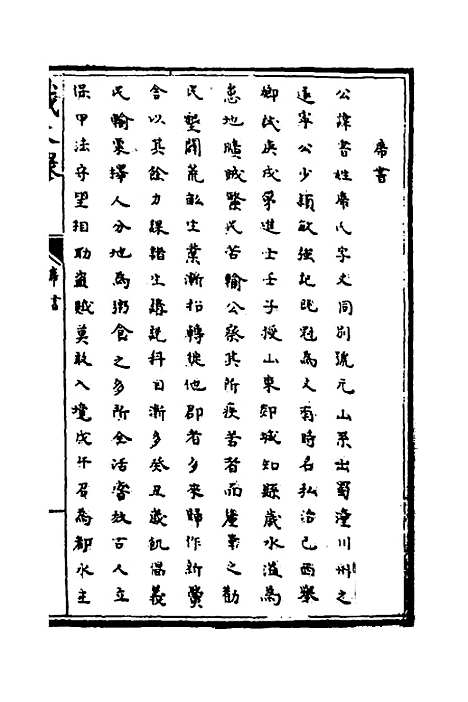 席書
公諱書姓席氏字文同別號元山系出蜀潼川州之
遂寧公少穎敏強記既冠為文有時名弘治己酉舉
鄉試庚戌第進士壬子授山東郯城知縣歲水溢為
患地曠賦繁民苦輸公察其所疾苦者而釐革之勸
民墾闢荒畝生業漸招轉徙他郡者多來歸作新黌
舍以其餘力課諸生講說科目漸多癸丑歲飢倡義
民輸粟擇人分地為粥食之多所全活嘗放古人立
保甲法守望相助盜賊莫敢入境戊午召為都水主
席書